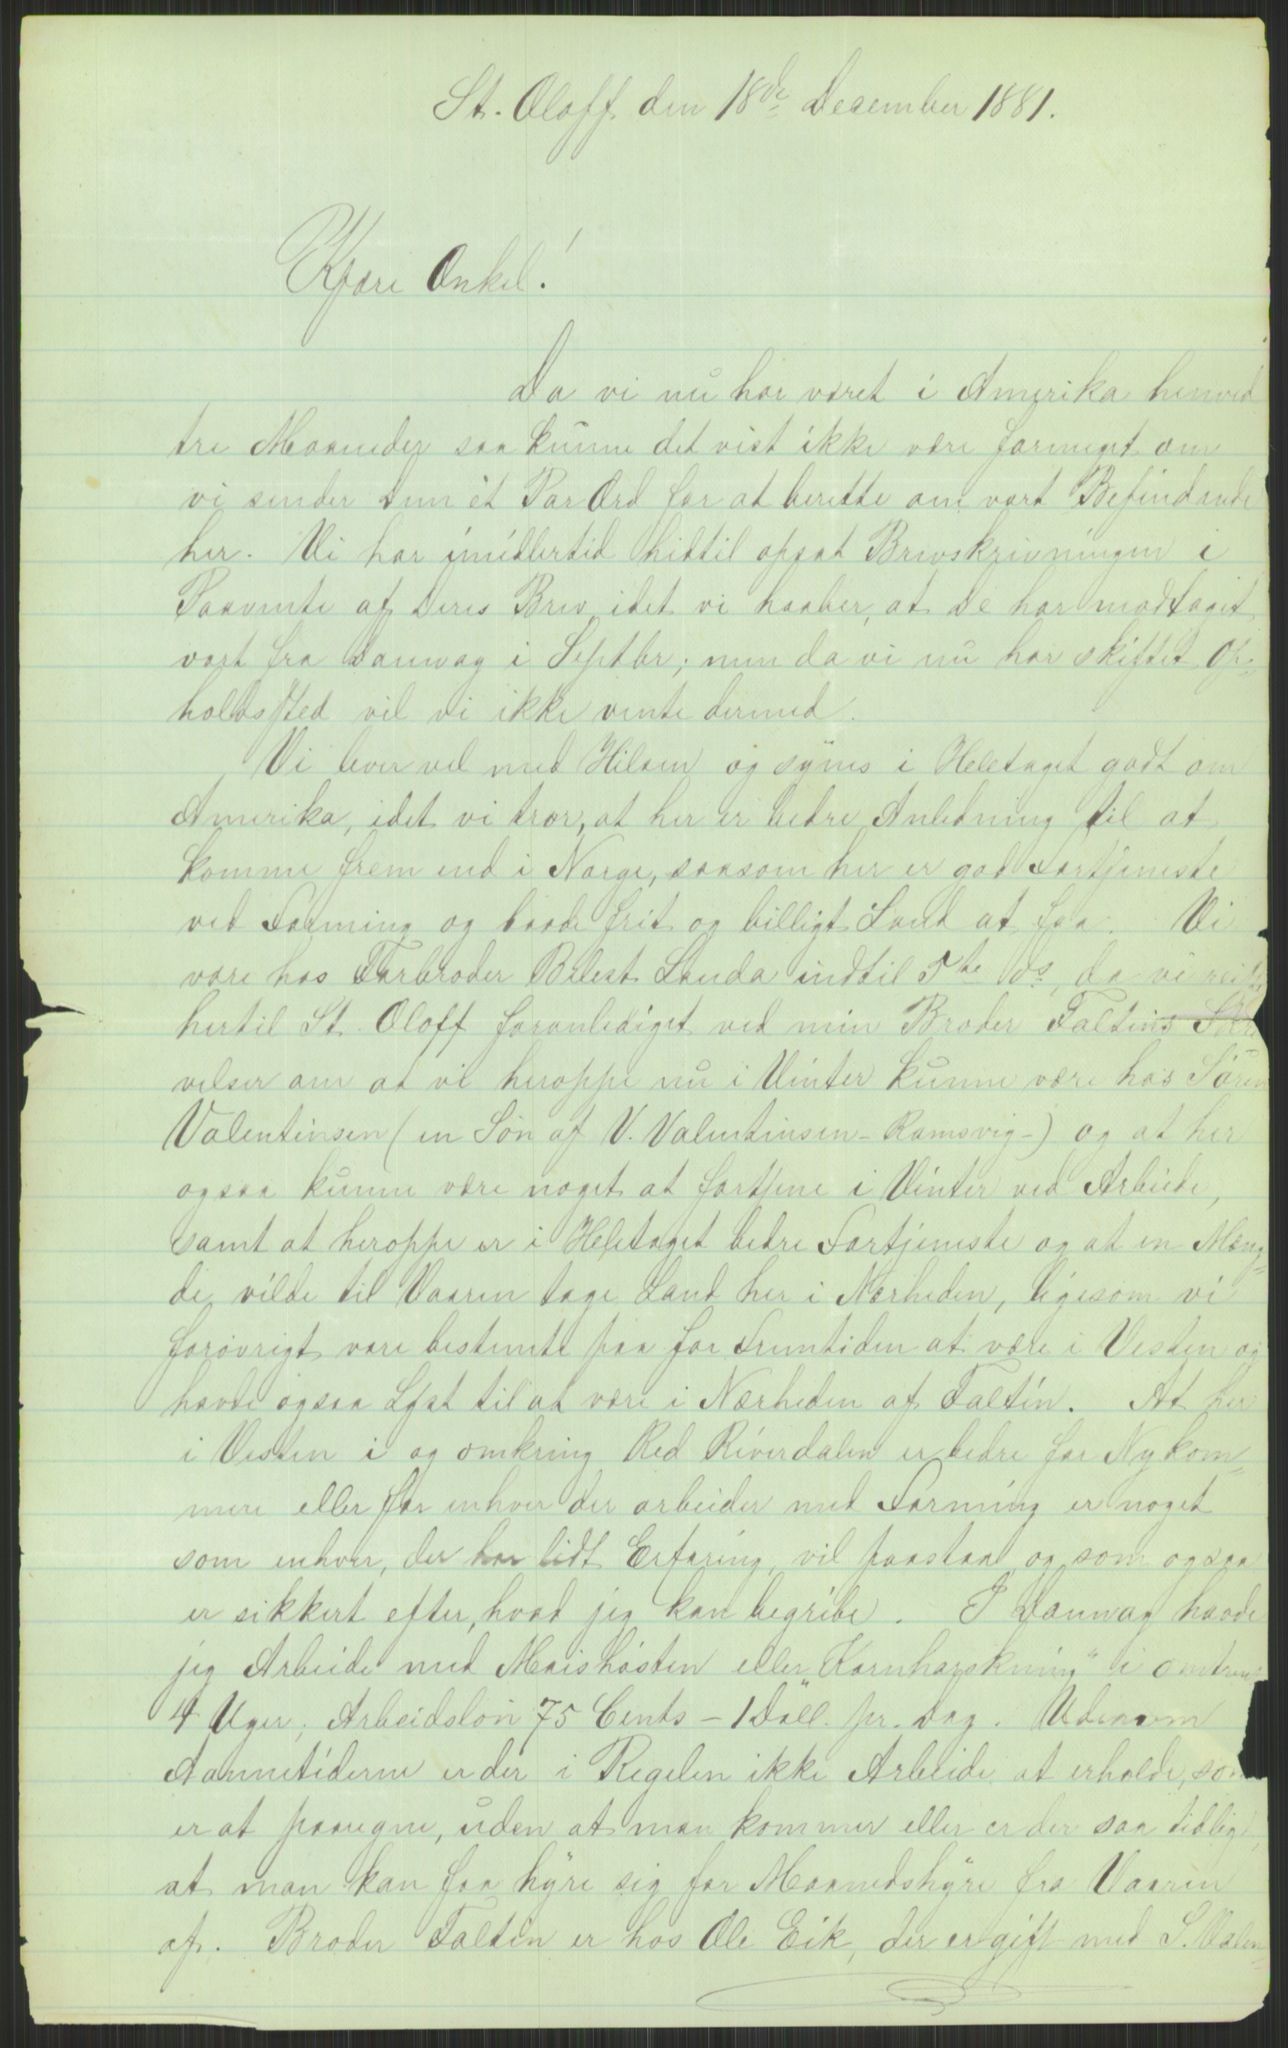 St. Oloff den 18de Desember 1881.
Kjære Onkel!
Da vi nu har været i Amerika henved
tre Maaneder saa kunne det vist ikke være formeget om
vi sender Dem ét Par Ord for at berette om vort Befindende
her. Vi har imidlertid hidtil opsat Brevskrivningen i
Paavente af Deres Brev, idet vi haaber, at De har modtaget
vort fra Danway i Septbr; men da vi nu har skiftet Op-
holdssted vil vi ikke vente dermed.
Vi lever vel med Hilsen og synes i Heletaget godt om
Amerika, idet vi tror, at her er bedre Anledning til at
komme frem end i Norge, saasom her er god Fortjeneste
ved Farming og baade frit og billigt Land at faa. Vi
vare hos Farbroder Belest Landa indtil 5te ds, da vi reiste
hertil St. Oloff foranlediget ved min Broder Faltins
velser om at vi heroppe nu i Vinter kunne være hos Sören
Valentinsen (en Søn af V. Valentinsen - Ramsvig -) og at her
ogsaa kunne være noget at fortjene i Vinter ved Arbeide,
samt at heroppe er i Heletaget bedre Fortjeneste og at en Mæng-
de vilde til Vaaren tage Land her i Nærheden, ligesom vi
forøvrigt vare bestemte paa for Fremtiden at være i Vesten og
havde ogsaa Lyst til at være i Nærheden af Faltin. At her
i Vesten i og omkring Red Riverdalen er bedre for Nykom-
mere eller for enhver der arbeider med Farming er noget
som enhver, der har lidt Erfaring, vil paastaa og som ogsaa
er sikkert efter, hvad jeg kan begribe. I Danway havde
jeg Arbeide med Maishøsten eller "Kornharskning" i omtrent
4 Uger; Arbeidsløn 75 Cents - 1 Doll. pr. Dag. Udenom
Aannetiderne er der i Regelen ikke Arbeide at erholde, som
er at paaregne, uden at man kommer eller er der saa tidligt,
at man kan faa hyre sig for Maanedshyre fra Vaaren
af. Broder Faltin er hos Ole Eik, der er gift med S. Valen-